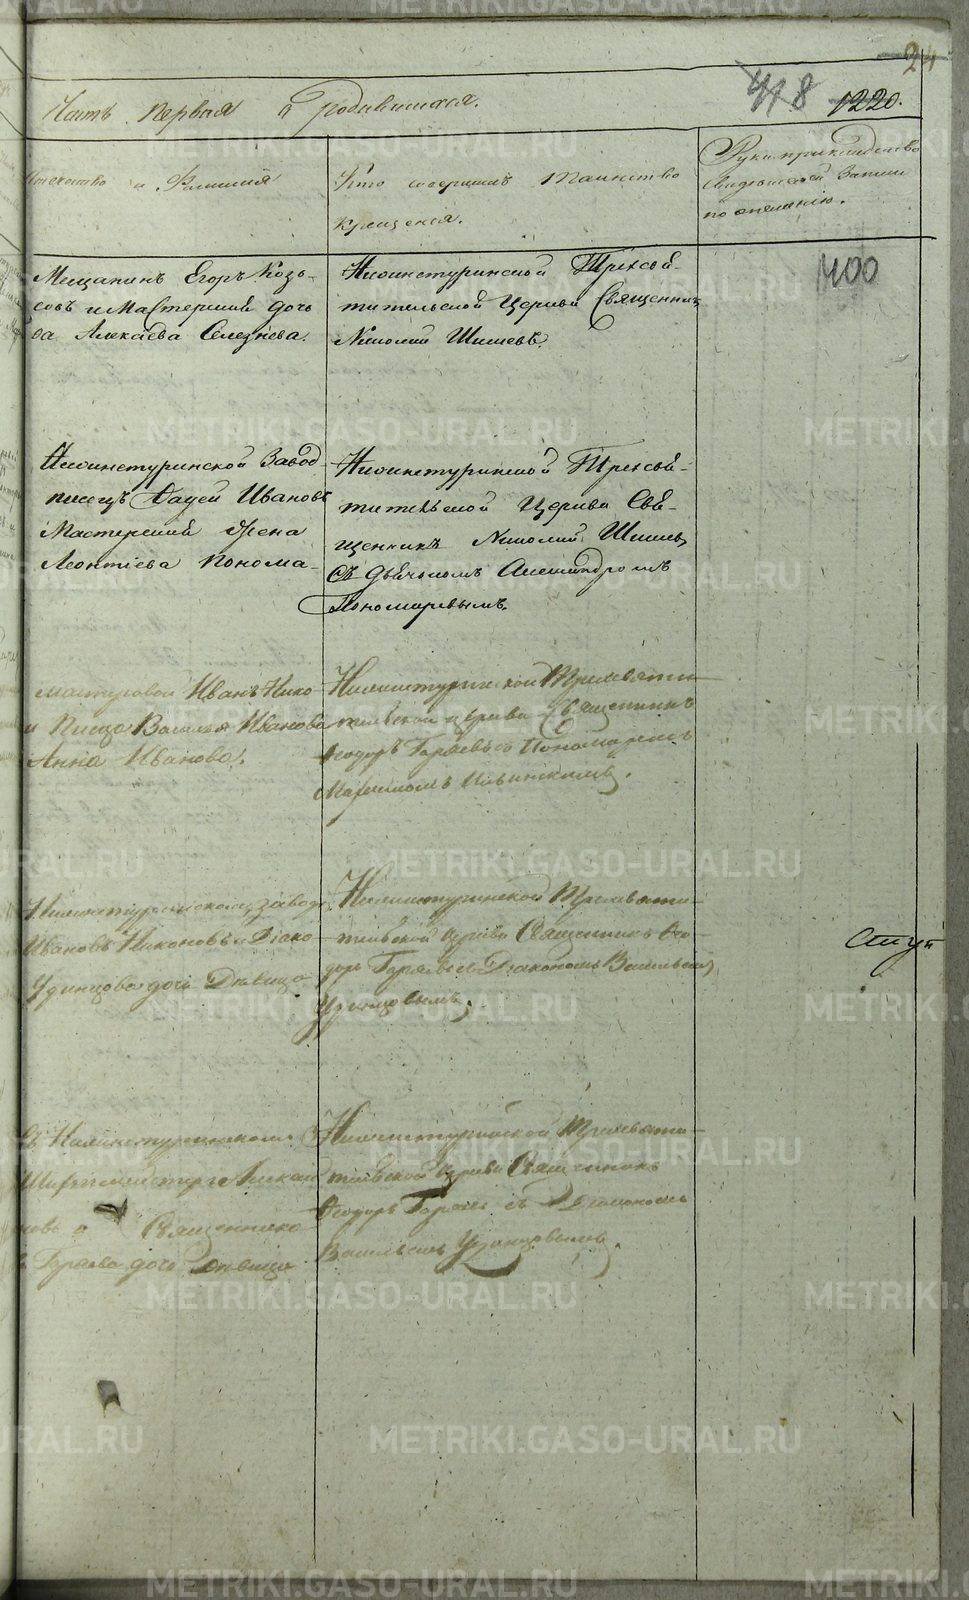 24
Часть первая о родившихся.
418 1220.
Отечество и Фамилия
Кто совершалъ Таинство
Крещенія.
Рукоприкладство
Свидетелей Записи
по желанію.
400
Мещанинъ Егоръ Козь-
совъ и Мастерский дочь
ва Алекѣева Селезнева.
Нижнетуринской Трехсвя-
тительской Церкви Священникъ
Николай Шишевъ.
Нижнетуринской Завод
писецъ Фадей Ивановъ
Мастерский Жена
Леонтіева Понома-
Нижнетуринской Трехсвя-
тительской Церкви Свя-
щенникъ Николай Шишевъ
Съ Дьячкомъ Александромъ
Пономаревымъ.
мастеровой Иванъ Нико
и Писца Василья Иванова
Анна Иванова.
Нижнетуринской Трехсвяти
тельской церкви Священникъ
Феодоръ Горяевъ съ Пономаремъ
Нижнетуринскаго завод
Ивановъ Никоновъ и Діако
Удинцова дочь Дѣвица
Нижнетуринской Трехсвяти-
тельской Церкви Священникъ Фео
доръ Горяевъ съ Діакономъ Васильемъ
Удинцовымъ.
Нижнетуринскаго
Священника
Горяева дочь Дѣвица
Нижнетуринской Трехсвяти-
тельской Церкви Священникъ
Феодоръ Горяевъ съ Діакономъ
Васильемъ Удинцовымъ.
METRIKI.GASO-URAL.RU